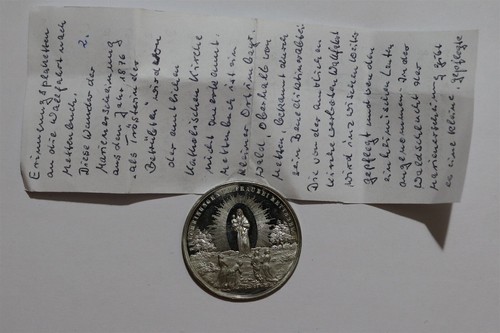 Erinnerungsplaketten
an die Wallfahrt nach
Mettenbuch. 2.
Diese Wunder der
Marienerscheinung
aus dem Jahr 1876
als Trösterin der
Betrübten wird von
der amtlichen
Katholischen Kirche
nicht anerkannt.
Mettenbuch ist ein
kleiner Ort im bayr.
Wald, oberhalb von
Metten, bekannt durch
sein Benediktinerabtei
Die von der amtlichen
Kirche verboten Wallfahrt
wird inzwischen weiter
gepflegt und von den
einheimischen Leuten
angenommen. In der
Waldschlucht der
Marienerscheinung gibt
es eine kleine, gepflegte